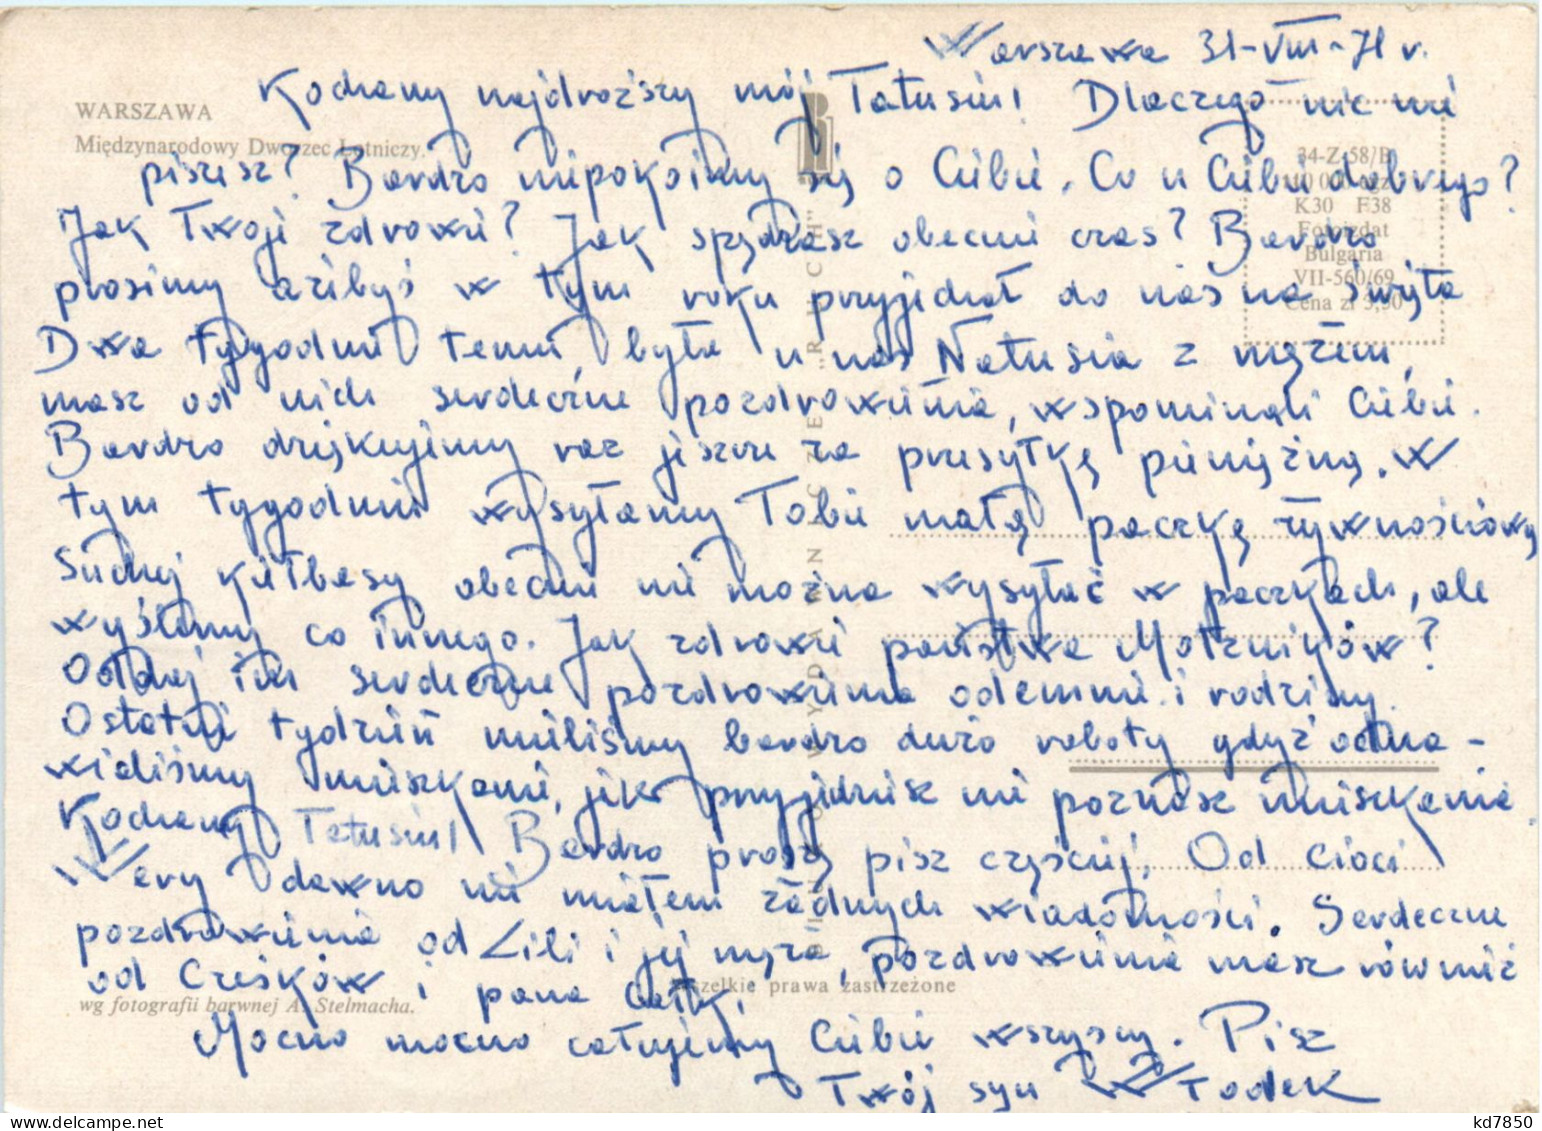 Warszawa 31-VIII-71 r.
Kochany najdroższy mój Tatusiu! Dlaczego nic nie
WARSZAWA
Międzynarodowy Dworzec Lotniczy.
piszesz? Bardzo niepokoimy się o Ciebie. Co u Ciebie dobrego?
34-Z-58/B
K30 F38
Fotoizdat
Bulgaria
VII-560/69
Cena zł 3,30
Jak Twoje zdrowie? Jak spędzasz obecnie czas? Bardzo
prosimy ażebyś w tym roku przyjechał do nas na święta
Dwa tygodnie temu była u nas Natusia z mężem,
masz od nich serdeczne pozdrowienia, wspominali Ciebie.
Bardzo dziękujemy raz jeszcze za przesyłkę pieniężną. W
tym tygodniu wysyłamy Tobie małą paczkę żywnościową
Suchej kiełbasy obecnie nie można wysyłać w paczkach, ale
wyślemy co innego. Jak zdrowie państwa Motrników?
Oddaj im serdeczne pozdrowienia odemnie i rodziny.
Ostatni tydzień mieliśmy bardzo dużo roboty gdyż odna-
wialiśmy mieszkanie, jak przyjedziesz nie poznasz mieszkania.
Kochany Tatusiu! Bardzo proszę pisz częściej. Od cioci
Wery dawno nie miałem żadnych wiadomości. Serdeczne
pozdrowienia od Lili i jej męża, pozdrowienia masz również
od Cześków i pana
BIURO WYDAWNICZE "RUCH"
Wszelkie prawa zastrzeżone
wg fotografii barwnej A. Stelmacha.
Mocno mocno całujemy Ciebie wszyscy. Pisz
Twój syn Włodek
kd7850